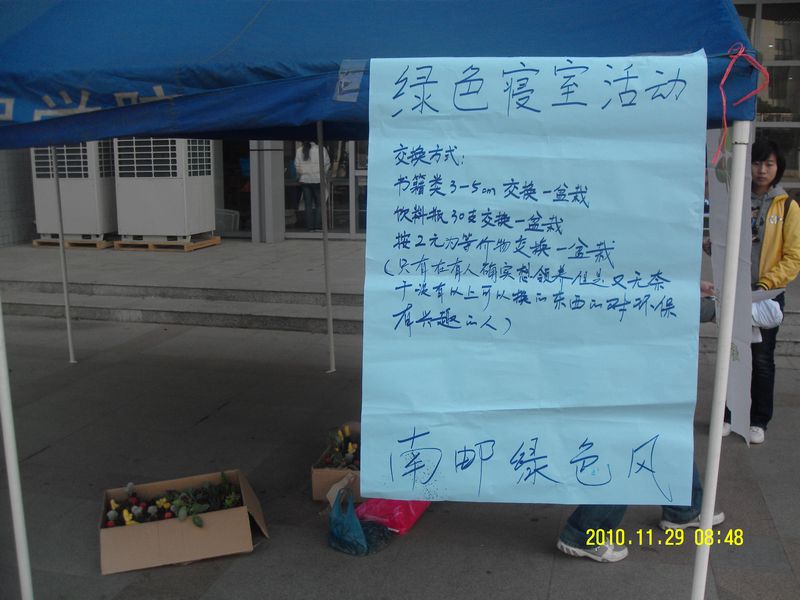 绿色寝室活动
交换方式:
书籍类3-5cm 交换一盆栽
饮料瓶30支交换一盆栽
按2元为等价物交换一盆栽
(只有在有人确实想领养但是又无奈
于没有以上可以换的东西的对环保
有兴趣的人)
南邮绿色风
2010.11.29 08:48